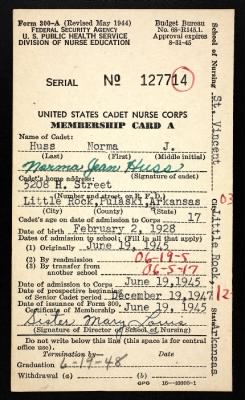 Form 300-A (Revised May 1944)
FEDERAL SECURITY AGENCY
U. S. PUBLIC HEALTH SERVICE
DIVISION OF NURSE EDUCATION
Budget Bureau
No. 68-R145.1.
Approval expires
8-31-45
SERIAL No 127714
UNITED STATES CADET NURSE CORPS
MEMBERSHIP CARD A
Name of Cadet:
Huss Norma J.
(Last) (First) (Middle initial)
Norma Jean Huss
Cadet's home address: (Signature of cadet)
5208 H. Street
(Number and street, or R. F. D.)
Little Rock, Pulaski, Arkansas
(City) (County) (State)
Cadet's age on date of admission to Corps 17
Date of birth February 2, 1928
Dates of admission to school: (Fill in all that apply)
(1) Originally June 19, 1945
(2) By readmission 06-19-5
(3) By transfer from another school 06-5-17
Date of admission to Corps June 19, 1945
Date of prospective beginning of Senior Cadet period December 19, 1947
Date of issuance of Form 300, Certificate of Membership June 19, 1945
Sister Mary Louis
(Signature of Director of School of Nursing)
Do not write below this line (this space is for central office use).
Termination by— Date
Graduation 6-19-48
Withdrawal (a) (b)
GPO
School of Nursing St. Vincent
City Little Rock,
State Arkansas
03
12